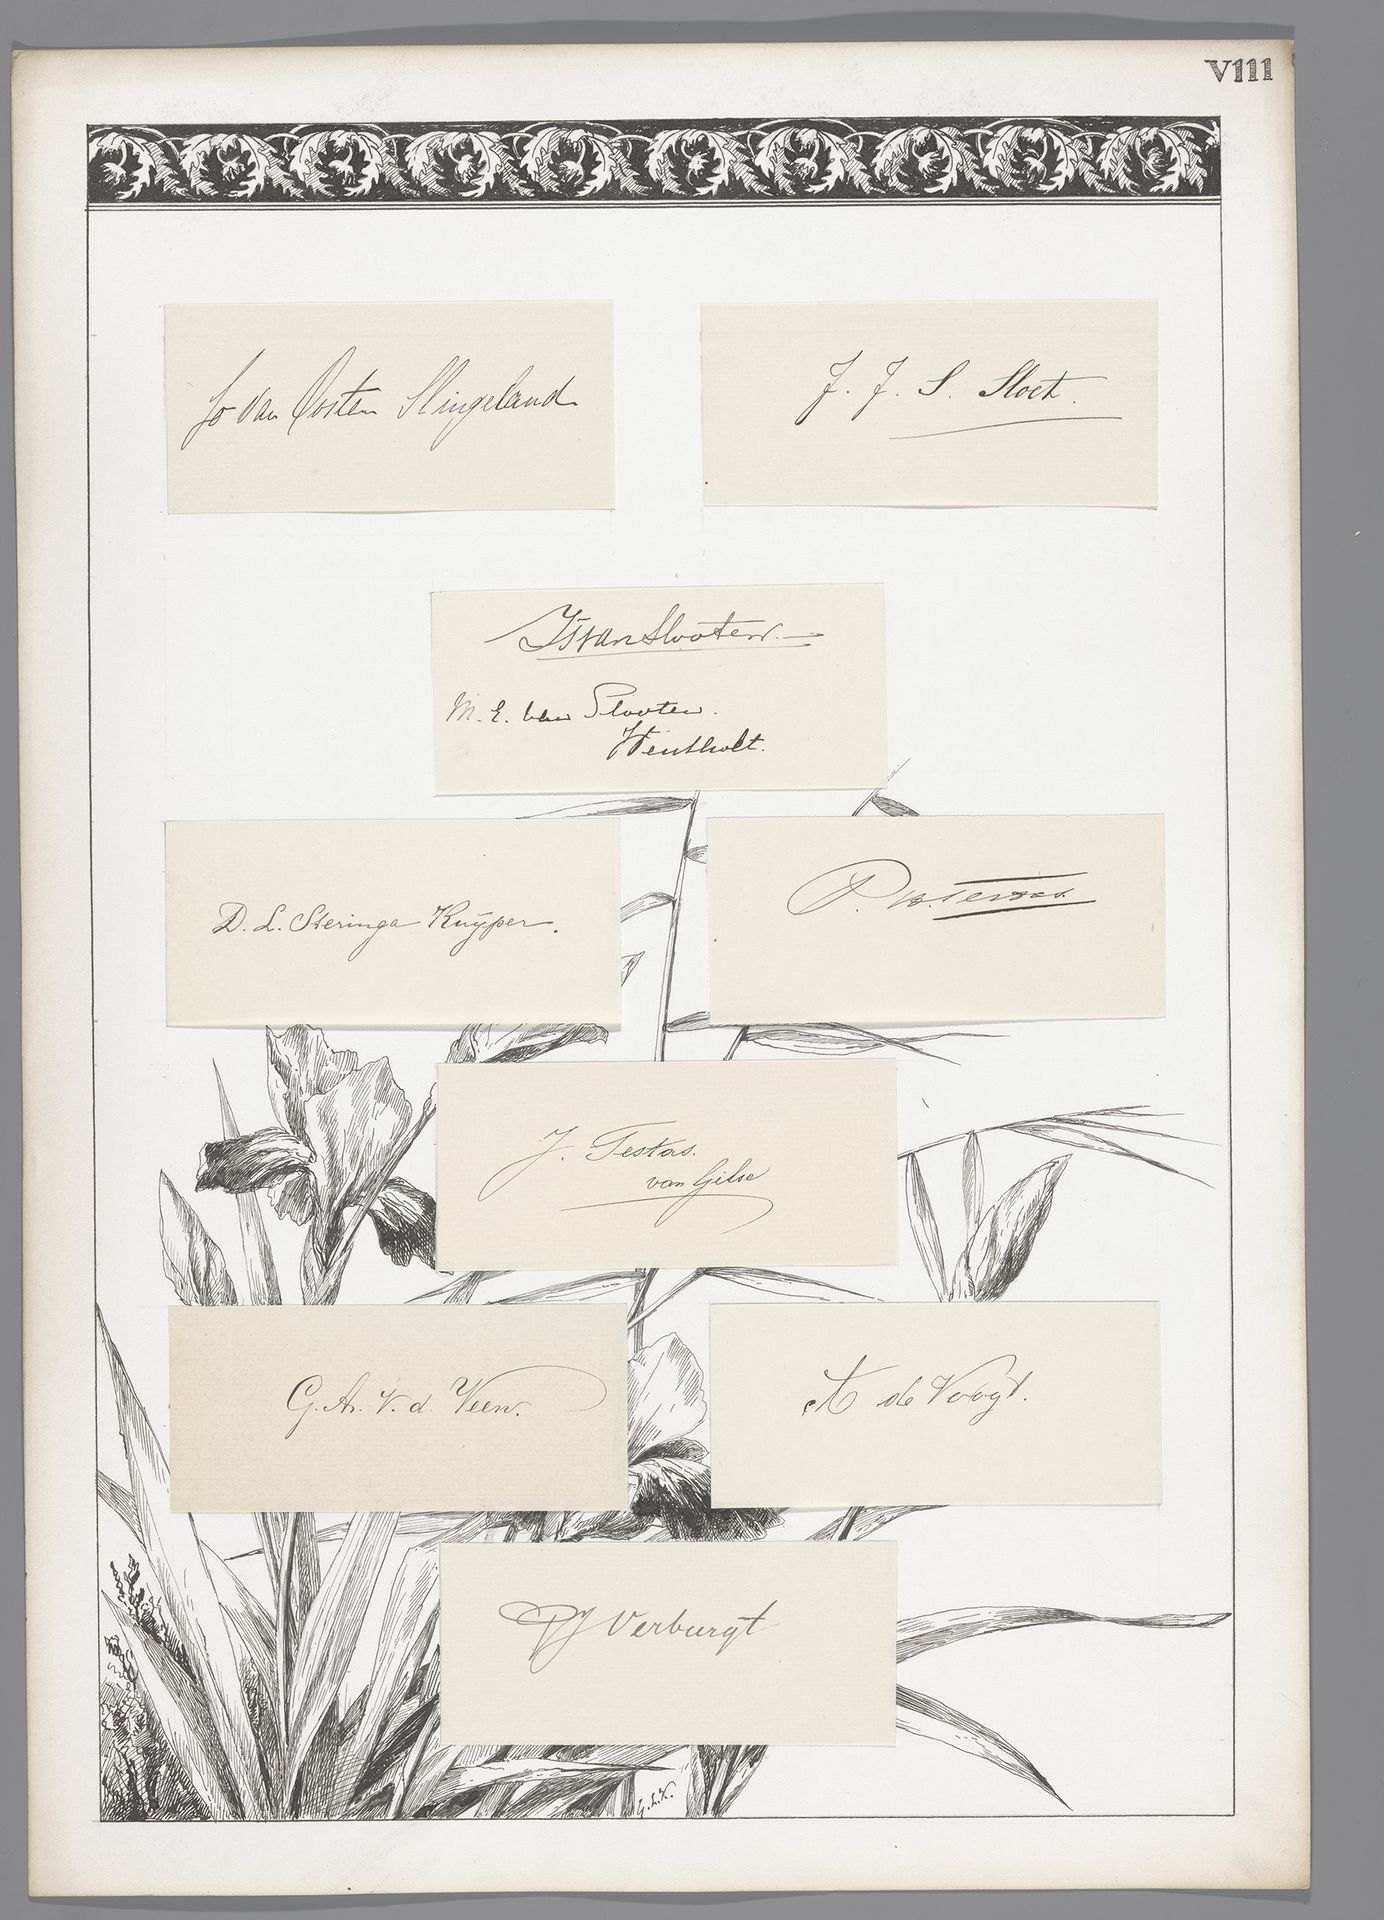 VIII
Jo van Oosten Slingeland
J. J. S. Sloet.
van Slooten.
M. E. van Slooten.
Hentholt.
D. L. Steringa Kuyper.
P.
J. Testas.
van Gilse
G. A. v. d. Veen.
A de Voogt.
PJ Verburgt
G.L.K.